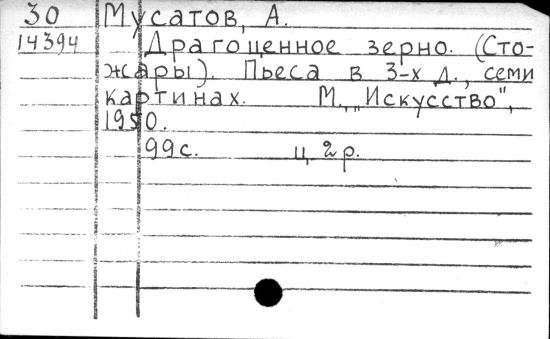 30 Мусатов, А.
14394 Драгоценное зерно. (Сто-
жары). Пьеса в 3-х д., семи
картинах. М., „Искусство",
1950.
99с. ц. 2р.